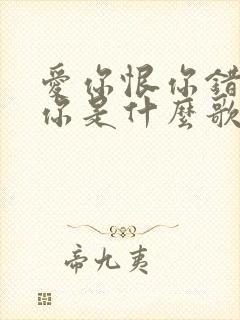 愛你恨你錯
你是什麼歌
帝九夷